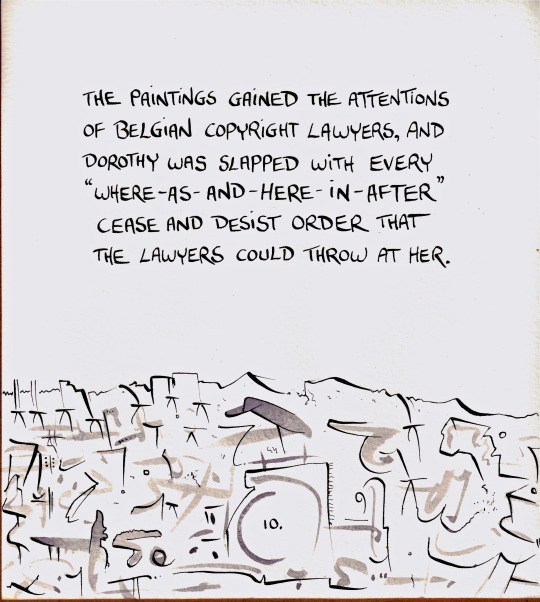 THE PAINTINGS GAINED THE ATTENTIONS
OF BELGIAN COPYRIGHT LAWYERS, AND
DOROTHY WAS SLAPPED WITH EVERY
“WHERE-AS-AND-HERE-IN-AFTER”
CEASE AND DESIST ORDER THAT
THE LAWYERS COULD THROW AT HER.
10.